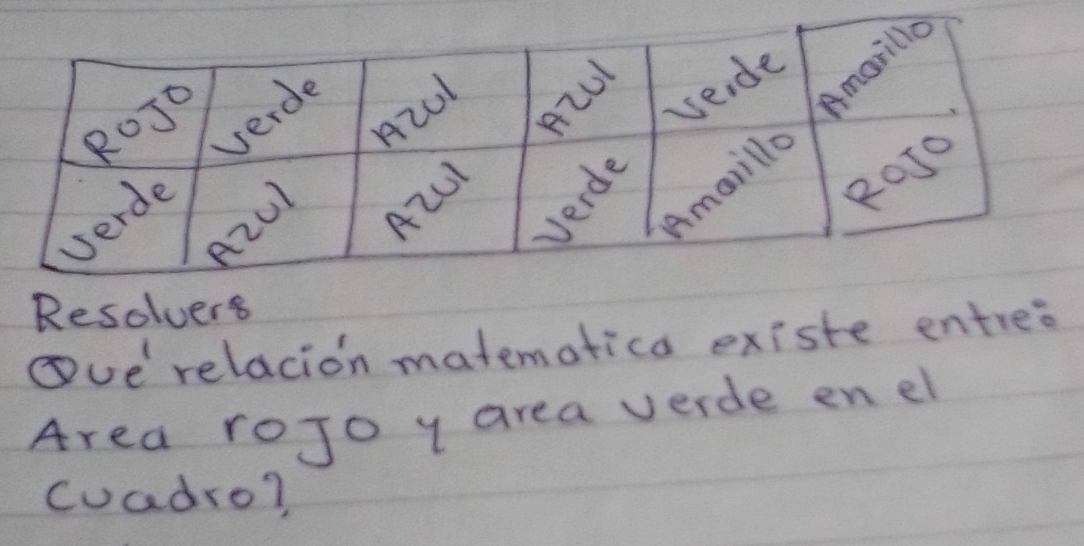 ROJO Verde AZUl AZUl Verde Amarillo
Verde AZUl AZUl Verde Amarillo ROJO
Resolver:
Qué relación matematica existe entre:
Area rojo y area verde en el
cuadro?